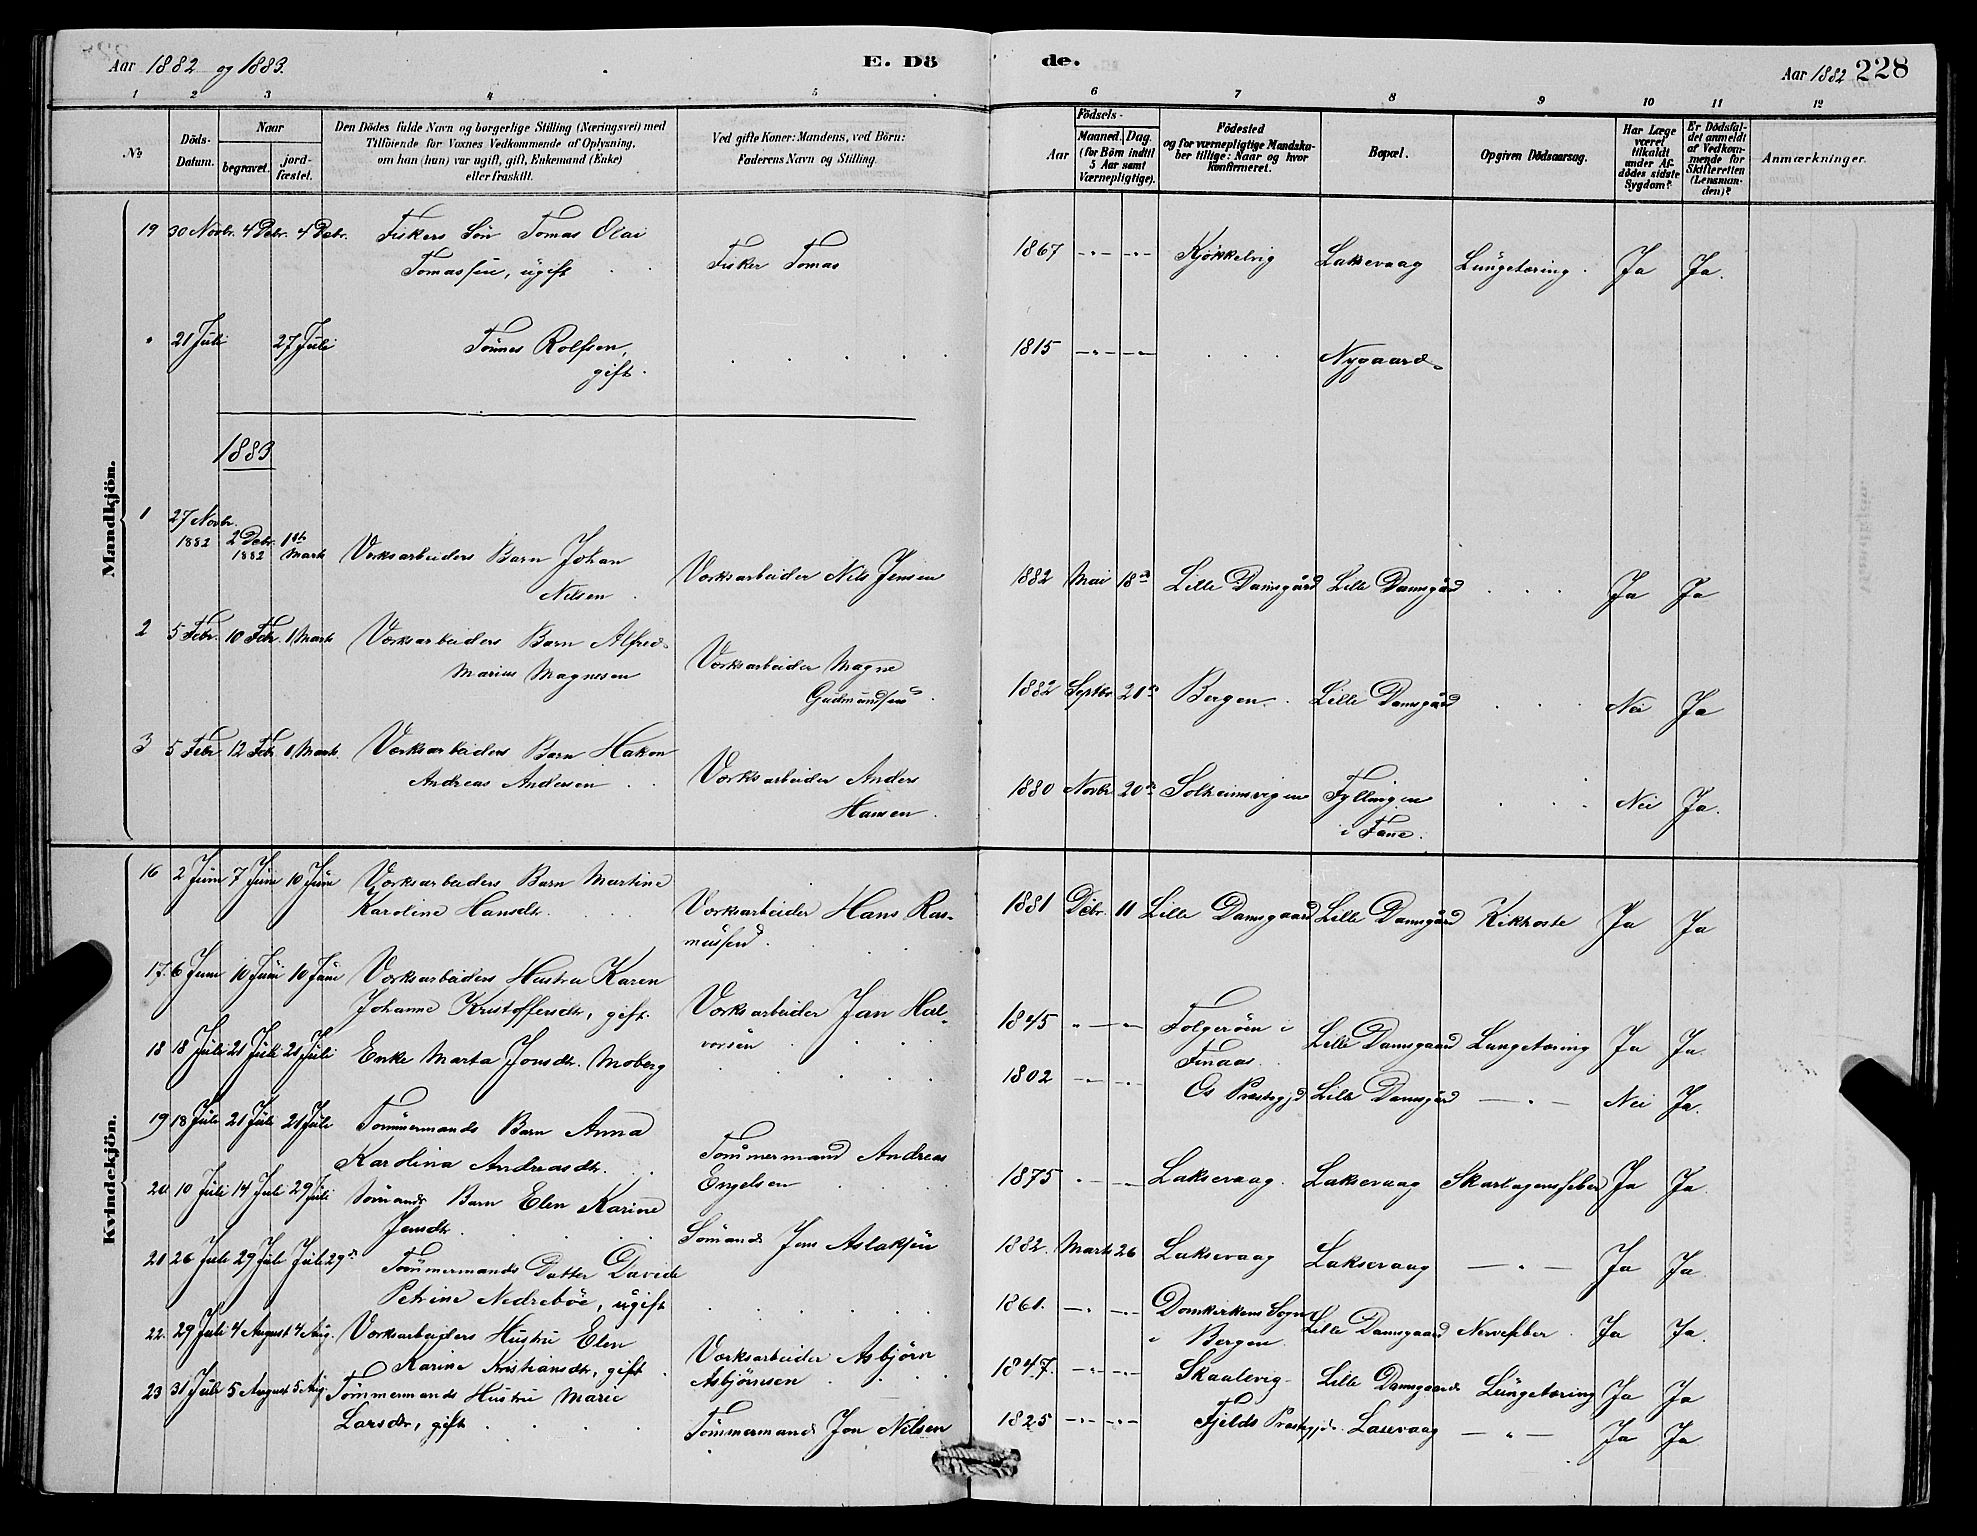 Aar 1882 og 1883.
E. Dö
de.
Aar 1882
228
1 2 3 4 5 6 7 8 9 10 11 12
No
Döds-
Datum.
Naar
begravet.
jord-
fæstet.
Den Dödes fulde Navn og borgerlige Stilling (Næringsvei) med
Tilföiende for Voxnes Vedkommende af Oplysning,
om han (hun) var ugift, gift, Enkemand (Enke)
eller fraskilt.
Ved gifte Koner: Mandens, ved Börn:
Faderens Navn og Stilling.
Födsels-
Aar
Maaned.
Dag.
(for Börn indtil
5 Aar samt
Værnepligtige).
Födested
og for værnepligtige Mandska-
ber tillige: Naar og hvor
Konfirmeret.
Bopæl.
Opgiven Dödsaarsag.
Har Læge
været
tilkaldt
under Af-
dödes sidste
Sygdom?
Er Dödsfal-
det anmeldt
af Vedkom-
mende for
Skifteretten
(Lensman-
den)?
Anmærkninger.
Mandkjön.
19 30 Novbr. 4 Debr. 4 Debr. Fiskers Sön Tomas Olai
Tomassen, ugift
Fisker Tomas
1867 Kjökkelvig Laksevaag Lungetæring. Ja Ja.
" 21 Juli 27 Juli Tönnes Rolfsen,
gift.
1815 Nygaard.
1883
1 27 Novbr. 1882 2 Debr. 1882 1ste Marts Værksarbeiders Barn Johan
Nilsen
Værksarbeider Nils Jensen
1882 Mai 18de Lille Damsgård Lille Damsgård Ja Ja
2 5 Febr. 10 Febr. 1 Marts Værksarbeiders Barn Alfred
Marius Magnesen
Værksarbeider Magne
Gudmundsen.
1882 Septbr 21de Bergen. Lille Damsgård Nei Ja
3 5 Febr. 12 Febr. 1 Marts. Værksarbeiders Barn Hakon
Andreas Andersen
Værksarbeider Anders
Hansen.
1880 Novbr 20de Solheimsvigen Fyllingen
i Fane. Nei Ja.
Kvindekjön.
16 2 Juni 7 Juni 10 Juni Værksarbeiders Barn Martine
Karoline Hansdtr.
Værksarbeider Hans Ras-
mussen.
1881 Debr. 11 Lille Damsgaard Lille Damsgård Kikhoste Ja Ja
17. 6 Juni 10 Juni 10 Juni Værksarbeiders Hustru Karen
Johanne Kristoffersdtr, gift.
Værksarbeider Jan Hal-
vorsen
1845 Folgeröen i
Finaas. Lille Damsgaard Lungetæring Ja Ja.
18 18 Juli 21 Juli 21 Juli Enke Marta Jonsdtr. Moberg
1802 Os Præstegjd Lille Damsgård Nei Ja.
19 18 Juli 21 Juli 21 Juli Tömmermands Barn Anna
Karolina Andreasdtr.
Tömmermand Andreas
Engelsen
1875 Laksevaag. Laksevaag Skarlagensfeber Ja Ja.
20 10 Juli 14 Juli 29 Juli Sömands Barn Elen Karine
Jensdtr.
Sömand Jens Aslaksen
1882. Marts 26 Laksevaag Laksevaag Ja Ja.
21 26 Juli 29 Juli Juli 29de Tömmermands Datter Davide
Petrine Nedreböe, ugift
1861. Domkirkens Sogn
i Bergen Lille Damsgaard Nervefeber Ja Ja.
22. 29 Juli 4 August 4 Aug. Værksarbeiders Hustru Elen
Karine Kristiansdtr, gift
Værksarbeider Asbjörn
Asbjörnsen
1847. Skaalevig Lille Damsgaard Lungetæring Ja Ja
23 31 Juli 5 August 5 Aug. Tömmermands Hustru Marie
Larsdtr, gift
Tömmermand Jon Nilsen
1825 Fjelds Præstegjd. Laxevaag Ja Ja